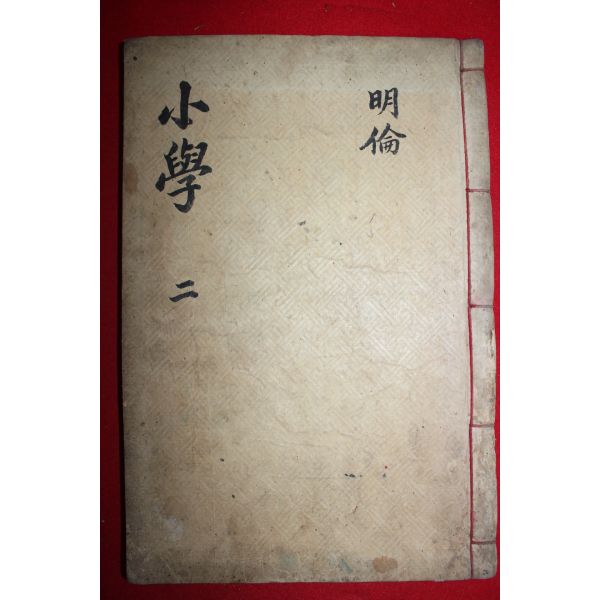 小學 二
明倫